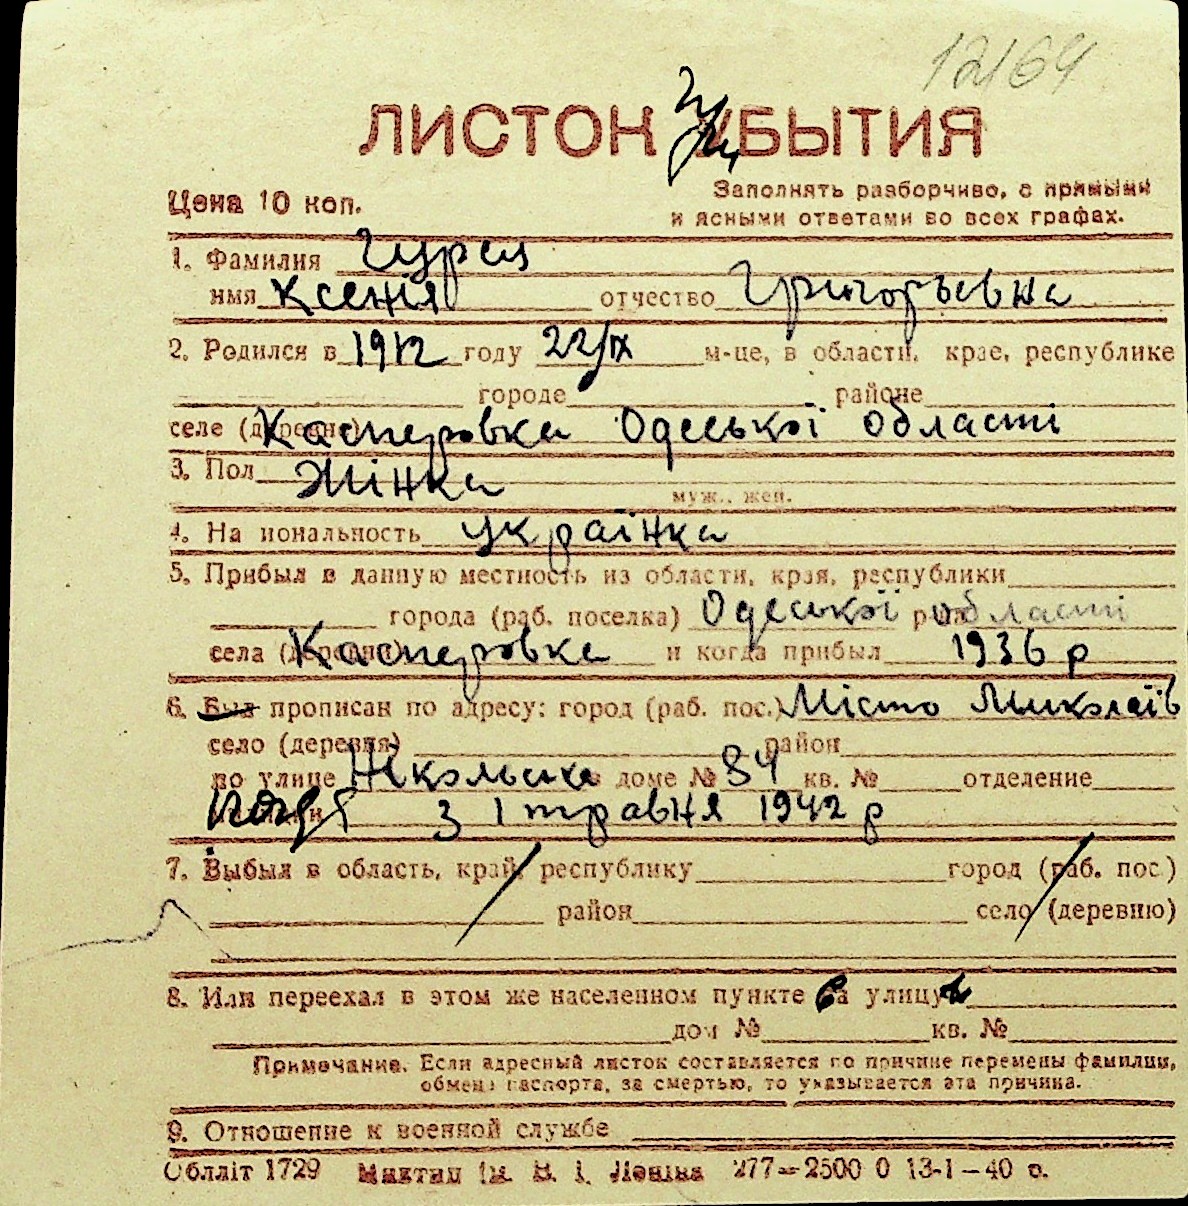 12164
ЛИСТОК УБЫТИЯ
Цена 10 коп.
Заполнять разборчиво, с прямыми
и ясными ответами во всех графах.
1. Фамилия Гурец
имя Ксенія отчество Григорьевна
2. Родился в 1912 году 22/IX м-це, в области, крае, республике
городе районе
селе (деревне) Касперовка Одеської області
3. Пол Жінка
муж., жен.
4. На иональность українка
5. Прибыл в данную местность из области, края, республики
города (раб. поселка) Одеської області
села (деревни) Касперовка и когда прибыл 1936 р
6. Был прописан по адресу: город (раб. пос.) Місто Миколаїв
село (деревня) район
по улице Нікольска в доме № 84 кв. № отделение
з 1 травня 1942 р
7. Выбыл в область, край, республику город (раб. пос.)
район село (деревню)
8. Или переехал в этом же населенном пункте на улицу
дом № кв. №
Примечание. Если адресный листок составляется по причине перемены фамилии,
обмена паспорта, за смертью, то указывается эта причина.
9. Отношение к военной службе
Обллiт 1729 Миктип ім. В. І. Леніна 277—2500 0 13-1-40 р.